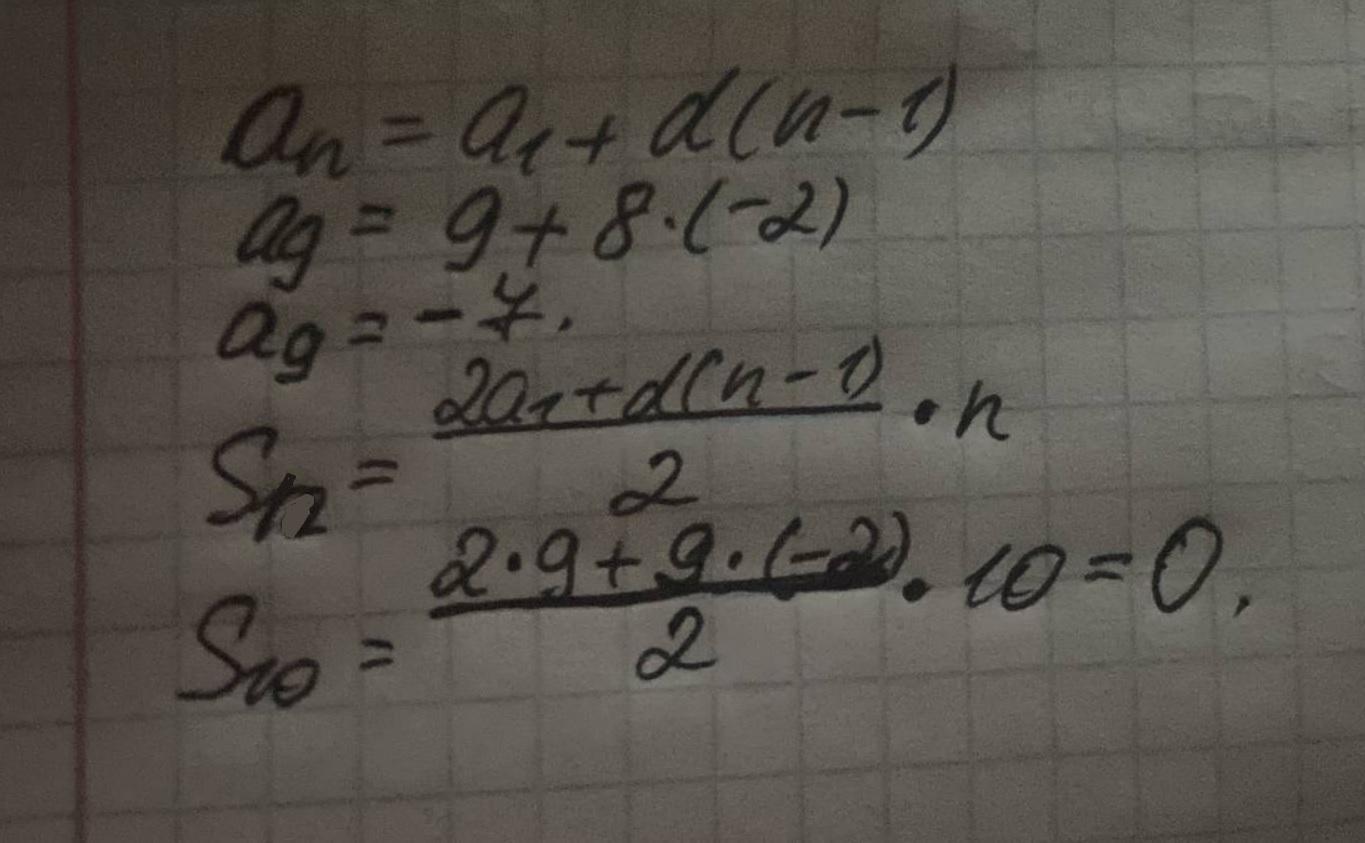 aₙ = a₁ + d(n-1)
a₉ = 9 + 8·(-2)
a₉ = -7.
Sₙ = (2a₁ + d(n-1))/2 · n
S₁₀ = (2·9 + 9·(-2))/2 · 10 = 0.